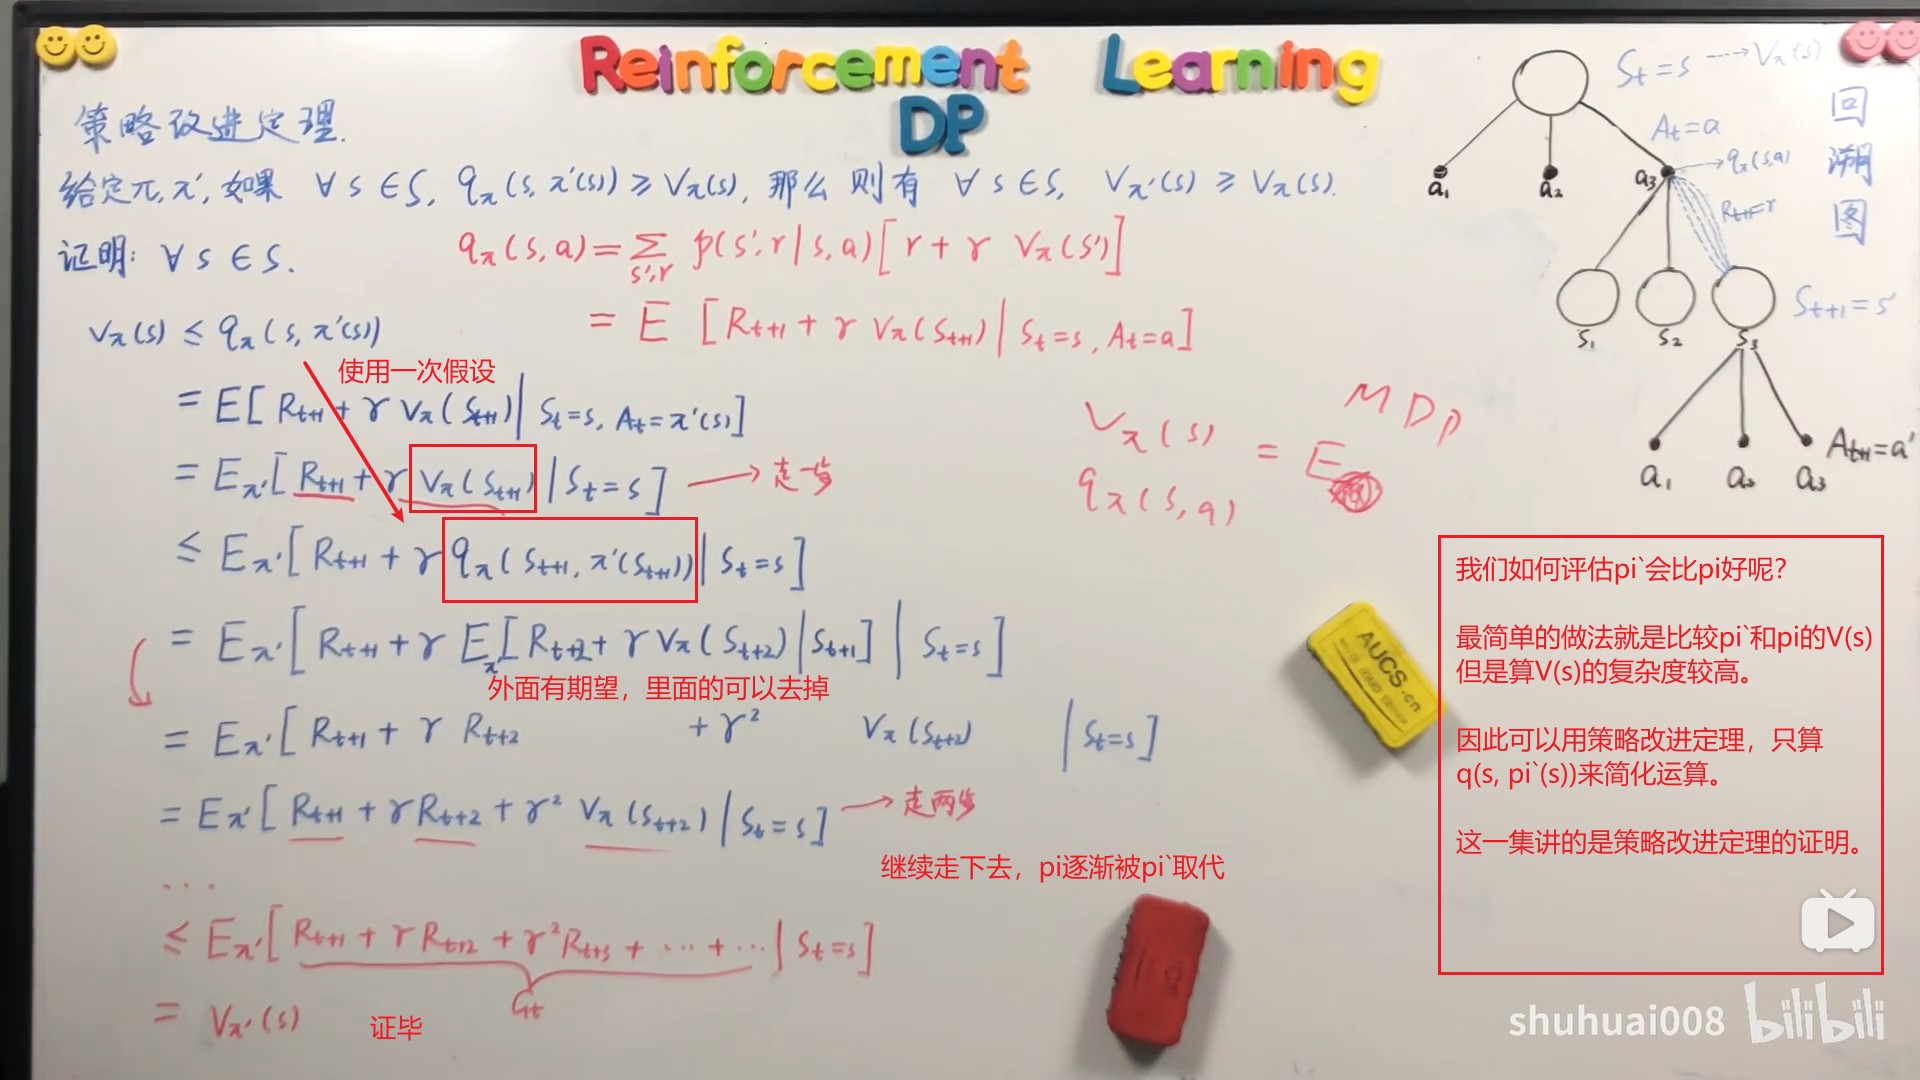 Reinforcement Learning
DP
策略改进定理.
给定π,π′,如果 ∀ s ∈ S, qπ(s,π′(s)) ≥ Vπ(s), 那么 则有 ∀ s ∈ S, Vπ′(s) ≥ Vπ(s).
证明: ∀ s ∈ S.
qπ(s,a) = Σs′,r p(s′,r|s,a)[r + γ Vπ(s′)]
= E [Rt+1 + γ Vπ(St+1) | St=s, At=a]
Vπ(s) ≤ qπ(s,π′(s))
使用一次假设
= E[Rt+1 + γ Vπ(St+1) | St=s, At=π′(s)]
= Eπ′[Rt+1 + γ Vπ(St+1) | St=s] → 走一步
≤ Eπ′[Rt+1 + γ qπ(St+1, π′(St+1)) | St=s]
= Eπ′[Rt+1 + γ Eπ′[Rt+2 + γ Vπ(St+2) | St+1] | St=s]
外面有期望，里面的可以去掉
= Eπ′[Rt+1 + γ Rt+2 + γ² Vπ(St+2) | St=s]
= Eπ′[Rt+1 + γ Rt+2 + γ² Vπ(St+2) | St=s] → 走两步
继续走下去，pi逐渐被pi`取代
...
≤ Eπ′[Rt+1 + γ Rt+2 + γ² Rt+3 + ... + ... | St=s]
Gt
= Vπ′(s)
证毕
MDP
Vπ(s)
= E
qπ(s,a)
St=s → Vπ(s)
At=a
回溯图
a1 a2 a3
→ qπ(s,a)
Rt+1=r
St+1=s′
S1 S2 S3
At+1=a′
a1 a2 a3
AUCS.cn
我们如何评估pi`会比pi好呢？
最简单的做法就是比较pi`和pi的V(s)
但是算V(s)的复杂度较高。
因此可以用策略改进定理，只算
q(s, pi`(s))来简化运算。
这一集讲的是策略改进定理的证明。
shuhuai008 bilibili